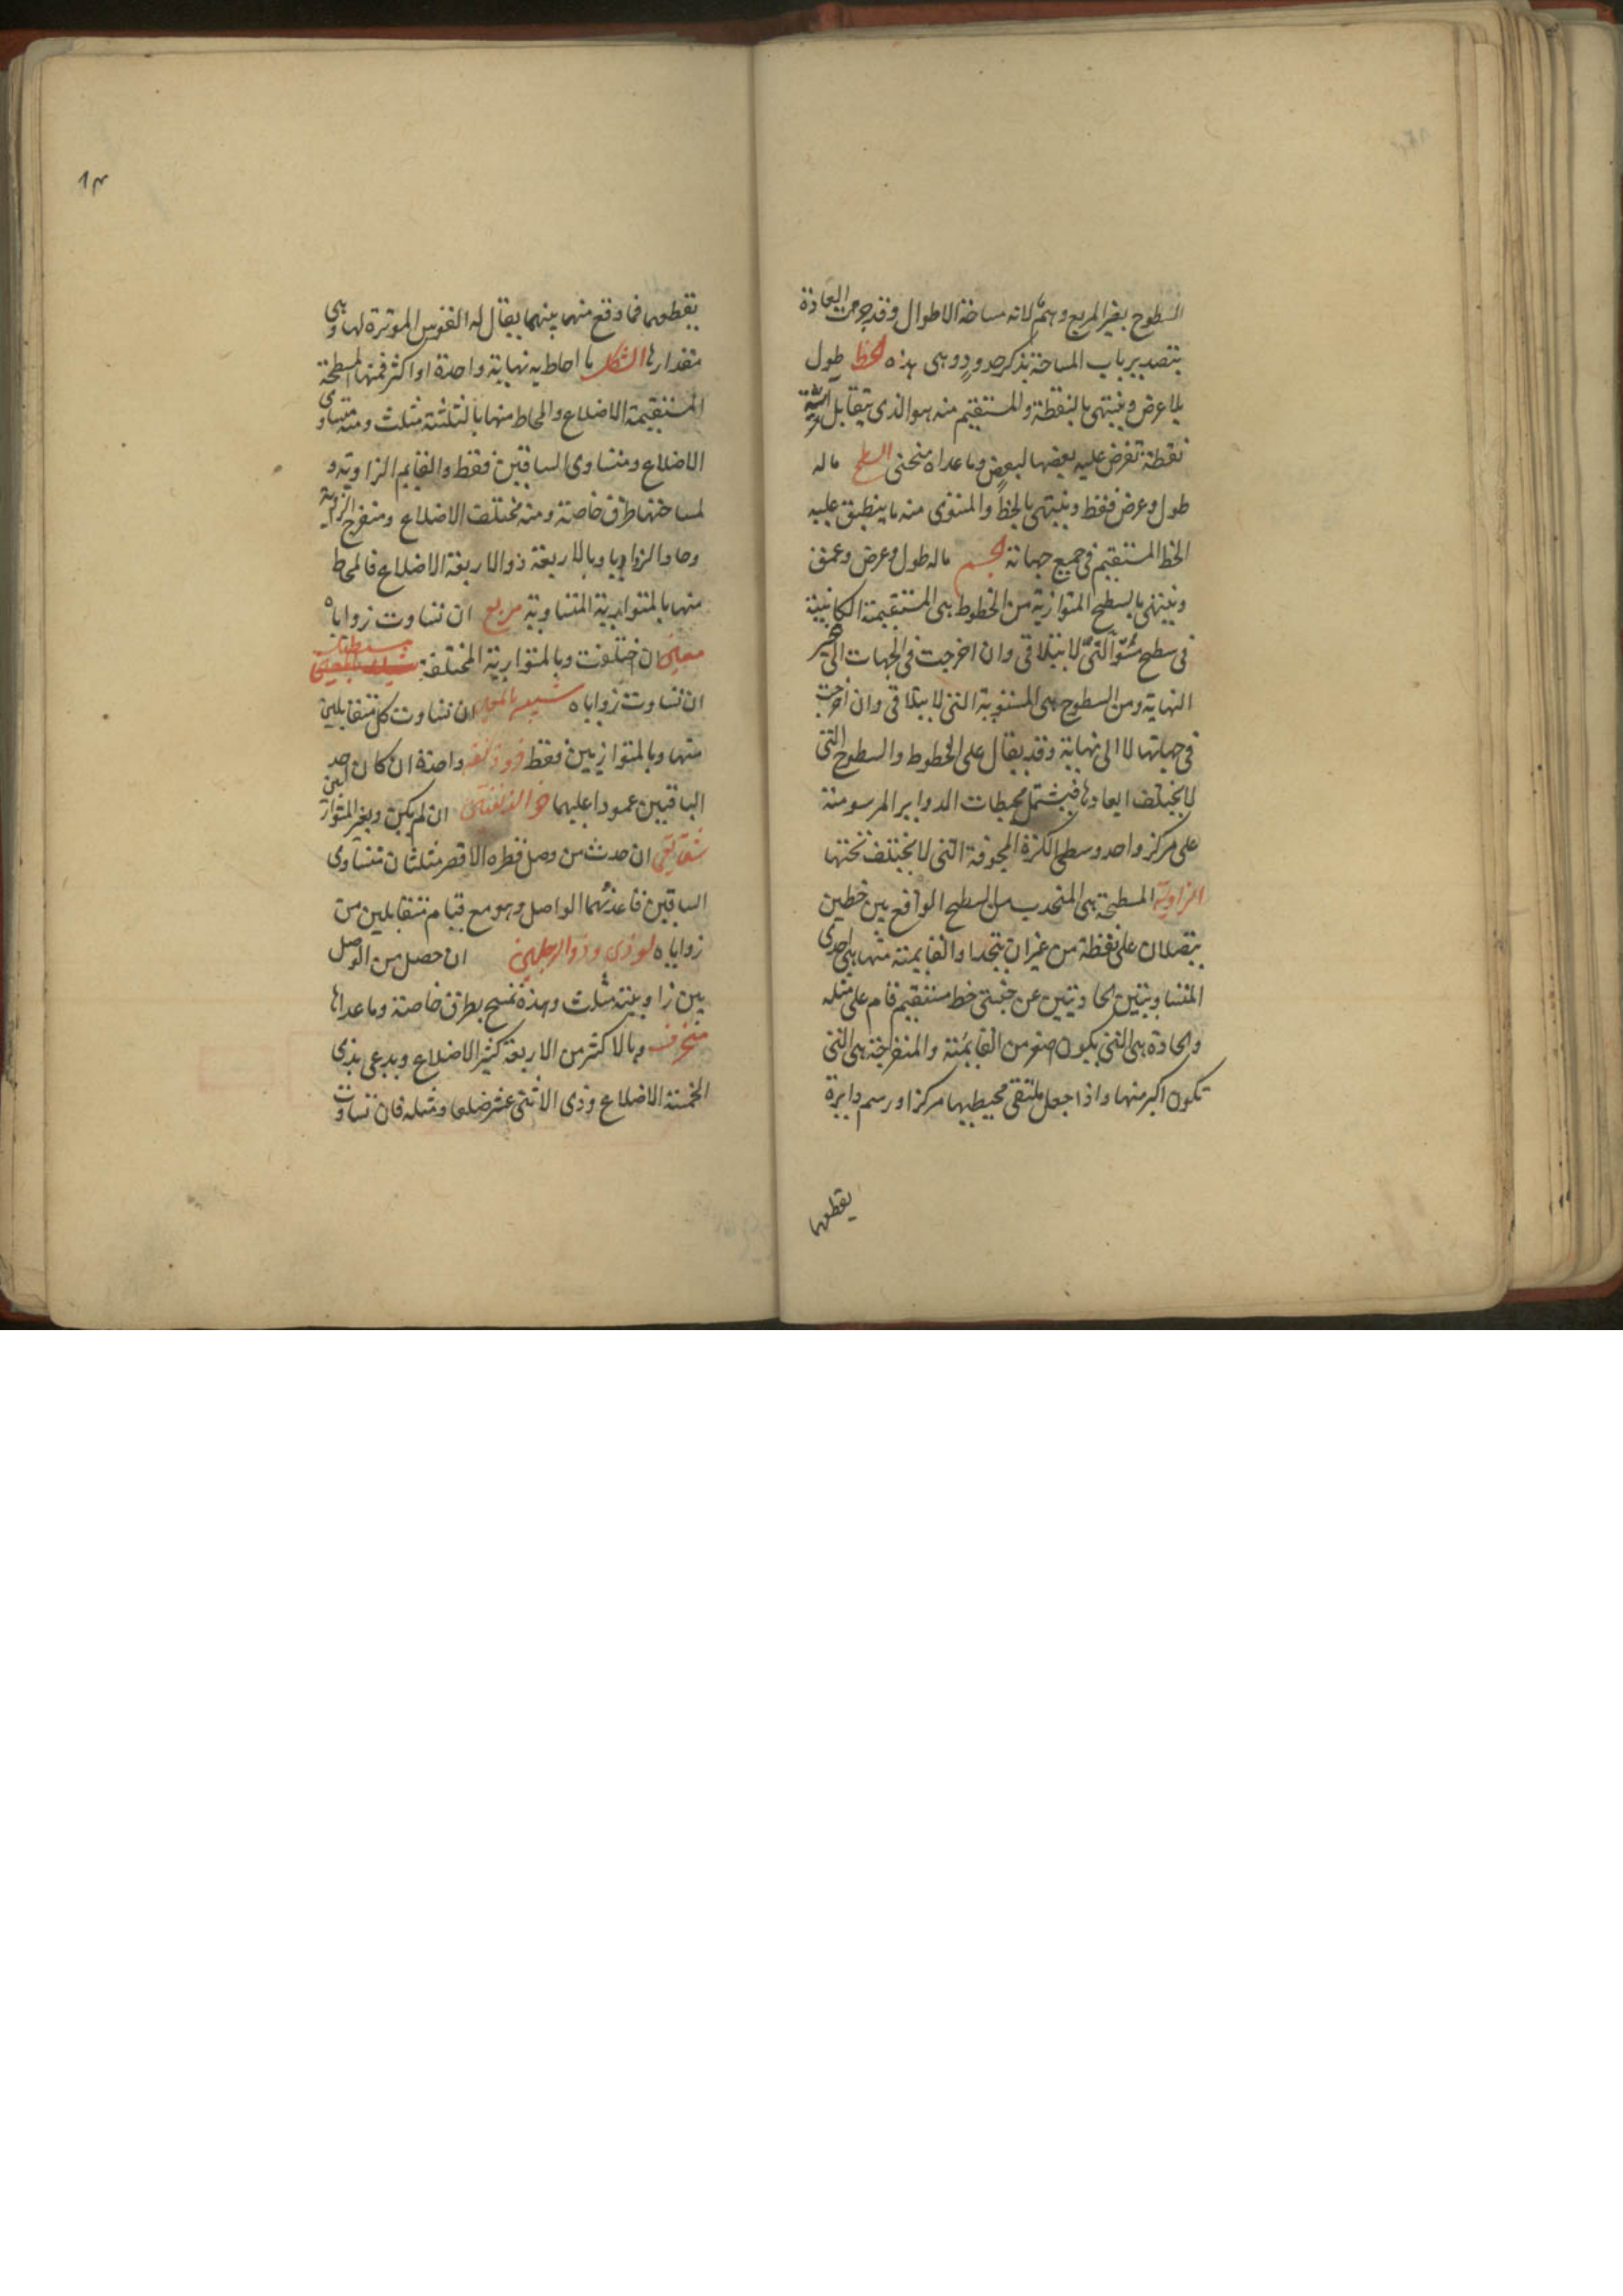 السطوح بغير المربع وهم لانه مساحة الاطوال وقد جرت العادة
بتصدير باب المساحة بذكر حدود وهى هذه الخط طول
بلا عرض وينتهى بالنقطة والمستقيم منه هو الذى يتقابل
نقطة تفرض عليه بعضها لبعض وما عداه منحنى السطح ماله
طول وعرض فقط وينتهى بالخط والمستوى منه ما ينطبق عليه
الخط المستقيم فى جميع جهاته الجسم ماله طول وعرض وعمق
وينتهى بالسطح المتوازية من الخطوط هى المستقيمة الكاينة
فى سطح مستو التى لا يتلاقى وان اخرجت فى الجهات الى غير
النهاية ومن السطوح هى المستوية التى لا يتلاقى وان اخرجت
فى جهاتها لا الى نهاية وقد يقال على الخطوط والسطوح التى
لا يختلف ابعادها فيشتمل محيطات الدواير المرسومة
على مركز واحد وسطحى الكرة المجوفة التى لا يختلف ثخنها
الزاوية المسطحة هى المتحدب من السطح الواقع بين خطين
يتصلان على نقطة من غير ان يتحدا والقايمة منها هى احدى
المتساويتين الحادثتين عن جنبتى خط مستقيم قام على مثله
والحادة هى التى يكون اصغر من القايمة والمنفرجة هى التى
تكون اكبر منها واذا جعل ملتقى محيطيها مركزا ورسم دايرة
يقطعها
١٣
يقطعهما فما وقع منهما بينهما يقال له القوس الموترة لها وهى
مقدارها الشكل ما احاط به نهاية واحدة او اكثر فمنها المسطحة
المستقيمة الاضلاع والمحاط منها بالثلثة مثلث ومنه متساوى
الاضلاع ومتساوى الساقين فقط والقايم الزاوية و
لمساحتها طرق خاصة ومنه مختلف الاضلاع ومنفرج الزاوية
وحاد الزوايا وبالاربعة ذو الاربعة الاضلاع فالمحاط
منها بالمتوازية المتساوية مربع ان تساوت زواياه
معين ان اختلفت وبالمتوازية المختلفة مستطيل
ان تساوت زواياه شبيه بالمعين ان تساوت كل متقابلين
منها وبالمتوازيين فقط ذو زنقة واحدة ان كان احد
الباقيين عمودا عليهما ذو الزنقتين ان لم يكن وبغير المتوازيين
شقايقى ان حدث من وصل قطره الاقصر مثلثان متساوى
الساقين قاعدتهما الواصل وهو مع قيام متقابلين من
زواياه لوزى وذو الرجلين ان حصل من الوصل
بين زاويتيه مثلث وهذه تمسح بطرق خاصة وما عداها
منحرف وبالاكثر من الاربعة كثير الاضلاع ويدعى بذى
الخمسة الاضلاع وذى الاثنى عشر ضلعا ومثله فان تساوت